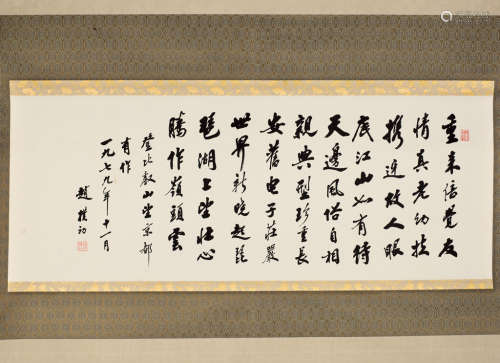 重来倍覺友
情真老幼扶
携逆故人眼
底江山如有待
天邊風俗自相
親典型珍重長
安舊
莊嚴
世界新曉起琵
琶湖上望壯心
騰作嶺頭雲
登比叡山望京都
有作
一九七九年十一月
趙樸初